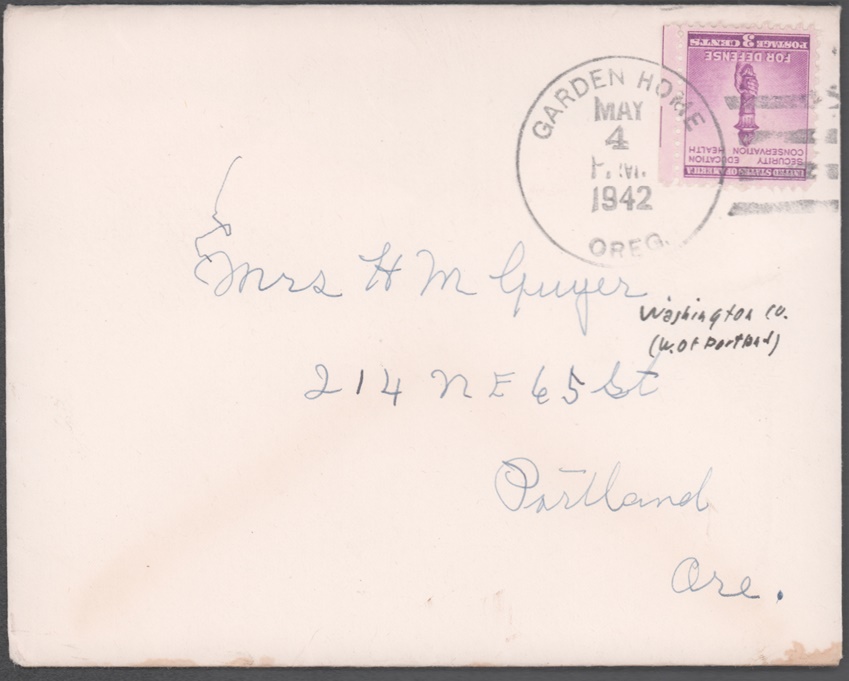 GARDEN HOME
MAY
4
P.M.
1942
OREG.
POSTAGE 3 CENTS
FOR DEFENSE
SECURITY EDUCATION
CONSERVATION HEALTH
UNITED STATES OF AMERICA
Mrs H M Guyer
Washington Co.
(W. OF Portland)
214 N E 65 St
Portland
Ore.